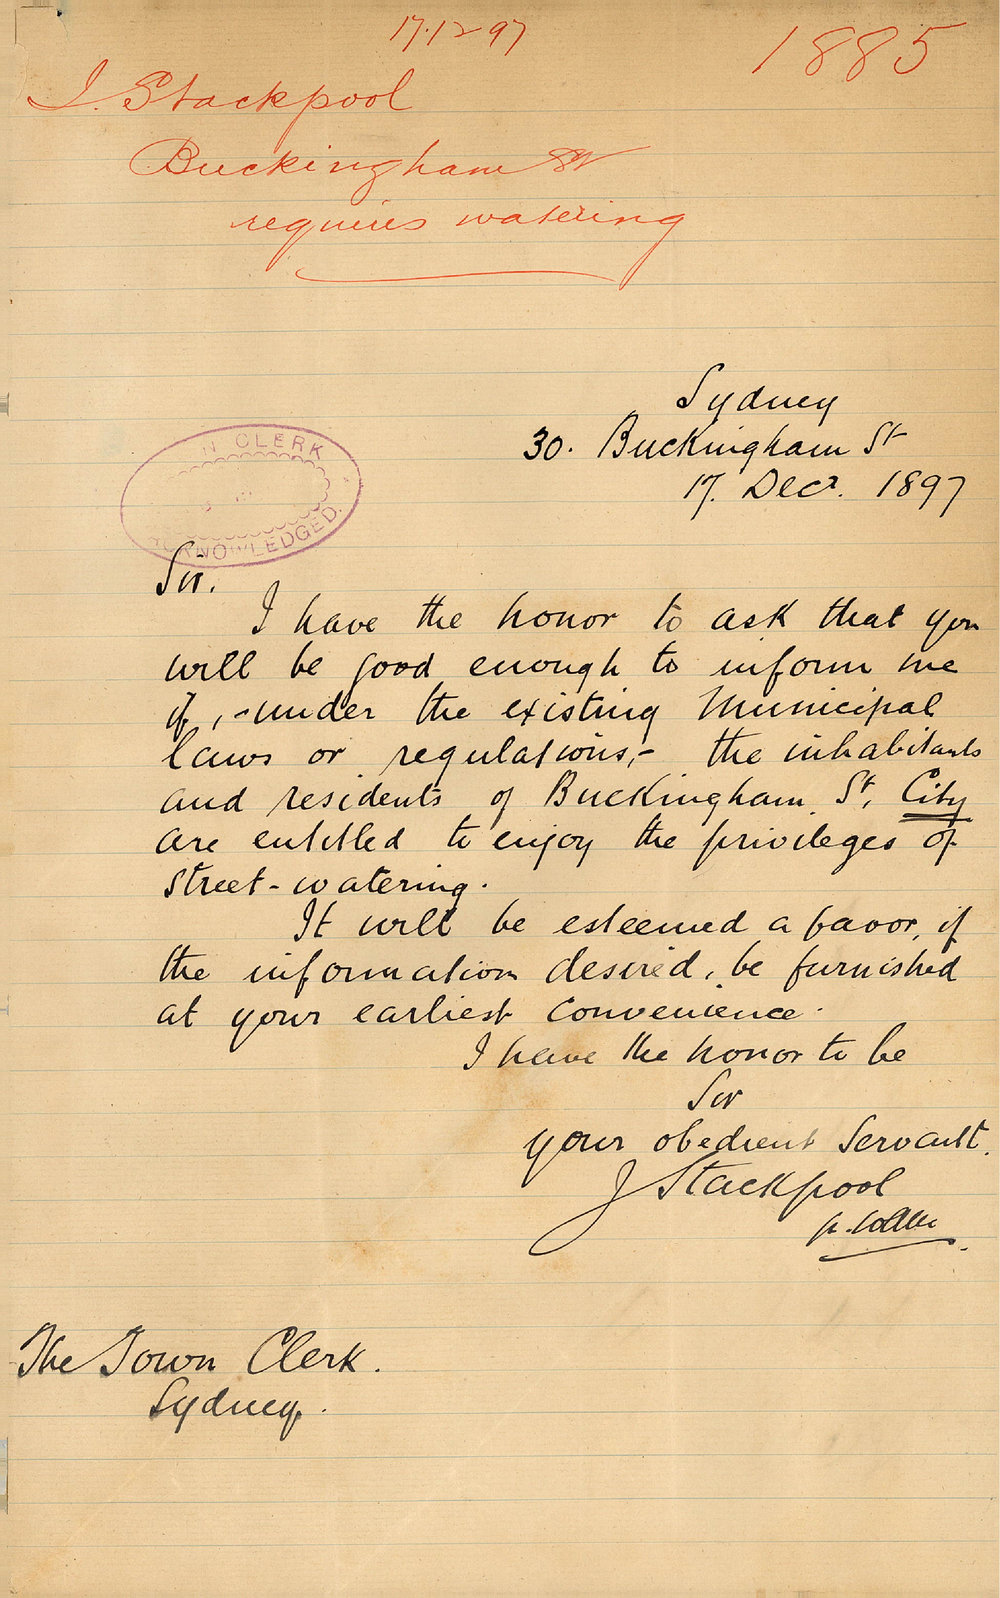 17.12 97
1885
J. Stackpool
Buckingham St
requires watering
Sydney
30. Buckingham St
17. Decr. 1897
N CLERK
KNOWLEDGED.
Sir.
I have the honor to ask that you
will be good enough to inform me
if, - under the existing Municipal
laws or regulations, - the inhabitants
and residents of Buckingham St, City
are entitled to enjoy the privileges of
street-watering.
It will be esteemed a favor, if
the information desired, be furnished
at your earliest convenience.
I have the honor to be
Sir
your obedient Servant.
J Stackpool
The Town Clerk.
Sydney.